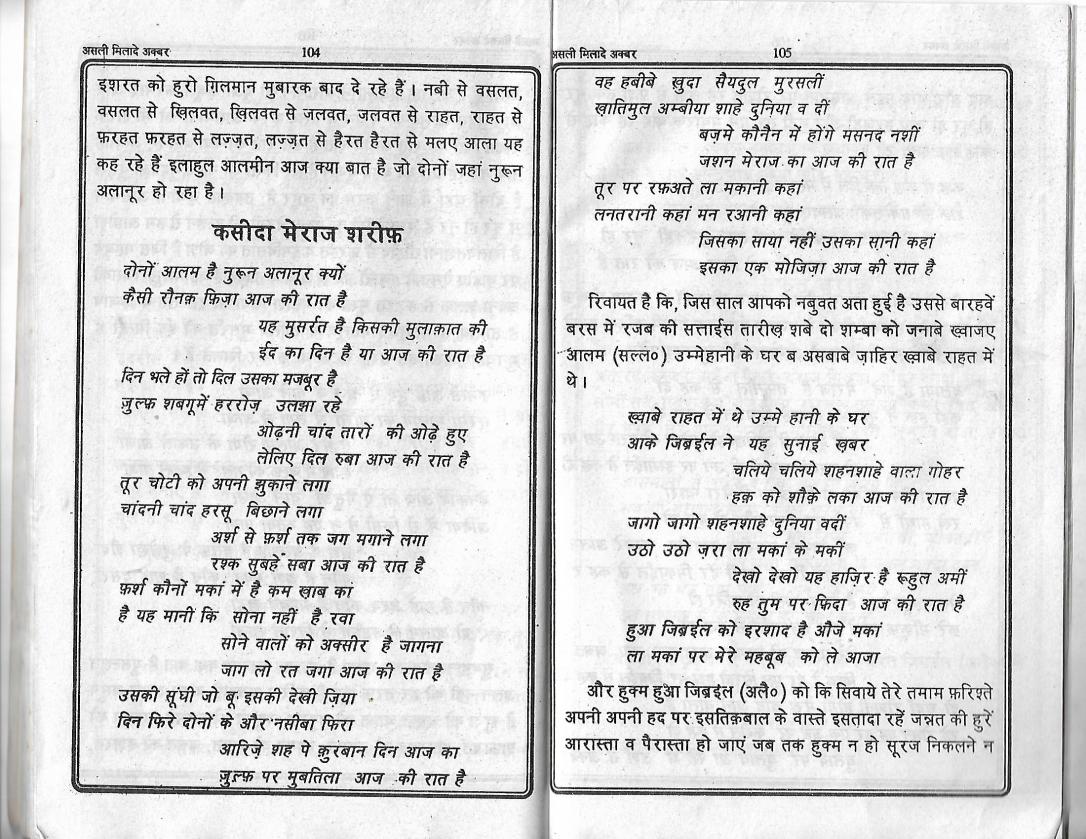 असली मिलादे अक्बर 104
इशरत को हुरो ग़िलमान मुबारक बाद दे रहे हैं। नबी से वसलत,
वसलत से ख़िलवत, ख़िलवत से जलवत, जलवत से राहत, राहत से
फ़रहत फ़रहत से लज़्ज़त, लज़्ज़त से हैरत हैरत से मलए आला यह
कह रहे हैं इलाहुल आलमीन आज क्या बात है जो दोनों जहां नुरून
अलानूर हो रहा है।
कसीदा मेराज शरीफ़
दोनों आलम है नुरून अलानूर क्यों
कैसी रौनक़ फ़िज़ा आज की रात है
यह मुसर्रत है किसकी मुलाक़ात की
ईद का दिन है या आज की रात है
दिन भले हों तो दिल उसका मजबूर है
ज़ुल्फ़ शबगूमें हररोज़ उलझा रहे
ओढ़नी चांद तारों की ओढ़े हुए
तेलिए दिल रुबा आज की रात है
तूर चोटी को अपनी झुकाने लगा
चांदनी चांद हरसू बिछाने लगा
अर्श से फ़र्श तक जग मगाने लगा
रश्क सुबहे सबा आज की रात है
फ़र्श कौनों मकां में है कम ख़ाब का
है यह मानी कि सोना नहीं है रवा
सोने वालों को अक्सीर है जागना
जाग लो रत जगा आज की रात है
उसकी सूंघी जो बू इसकी देखी ज़िया
दिन फिरे दोनों के और नसीबा फिरा
आरिज़े शह पे क़ुरबान दिन आज का
ज़ुल्फ़ पर मुबतिला आज की रात है
असली मिलादे अक्बर 105
वह हबीबे ख़ुदा सैयदुल मुरसलीं
ख़ातिमुल अम्बीया शाहे दुनिया व दीं
बज़मे कौनैन में होंगे मसनद नशीं
जशन मेराज का आज की रात है
तूर पर रफ़अते ला मकानी कहां
लनतरानी कहां मन रआनी कहां
जिसका साया नहीं उसका सा़नी कहां
इसका एक मोजिज़ा आज की रात है
रिवायत है कि, जिस साल आपको नबुवत अता हुई है उससे बारहवें
बरस में रजब की सत्ताईस तारीख़ शबे दो शम्बा को जनाबे ख्वाजए
आलम (सल्ल०) उम्मेहानी के घर ब असबाबे ज़ाहिर ख्वाबे राहत में
थे।
ख्वाबे राहत में थे उम्मे हानी के घर
आके जिब्रईल ने यह सुनाई ख़बर
चलिये चलिये शहनशाहे वाला गोहर
हक़ को शौक़े लका आज की रात है
जागो जागो शहनशाहे दुनिया वदीं
उठो उठो ज़रा ला मकां के मकीं
देखो देखो यह हाज़िर है रूहुल अमीं
रुह तुम पर फ़िदा आज की रात है
हुआ जिब्रईल को इरशाद है औजे मकां
ला मकां पर मेरे महबूब को ले आजा
और हुक्म हुआ जिब्रईल (अलै०) को कि सिवाये तेरे तमाम फ़रिश्ते
अपनी अपनी हद पर इसतिक़बाल के वास्ते इसतादा रहें जन्नत की हुरें
आरास्ता व पैरास्ता हो जाएं जब तक हुक्म न हो सूरज निकलने न